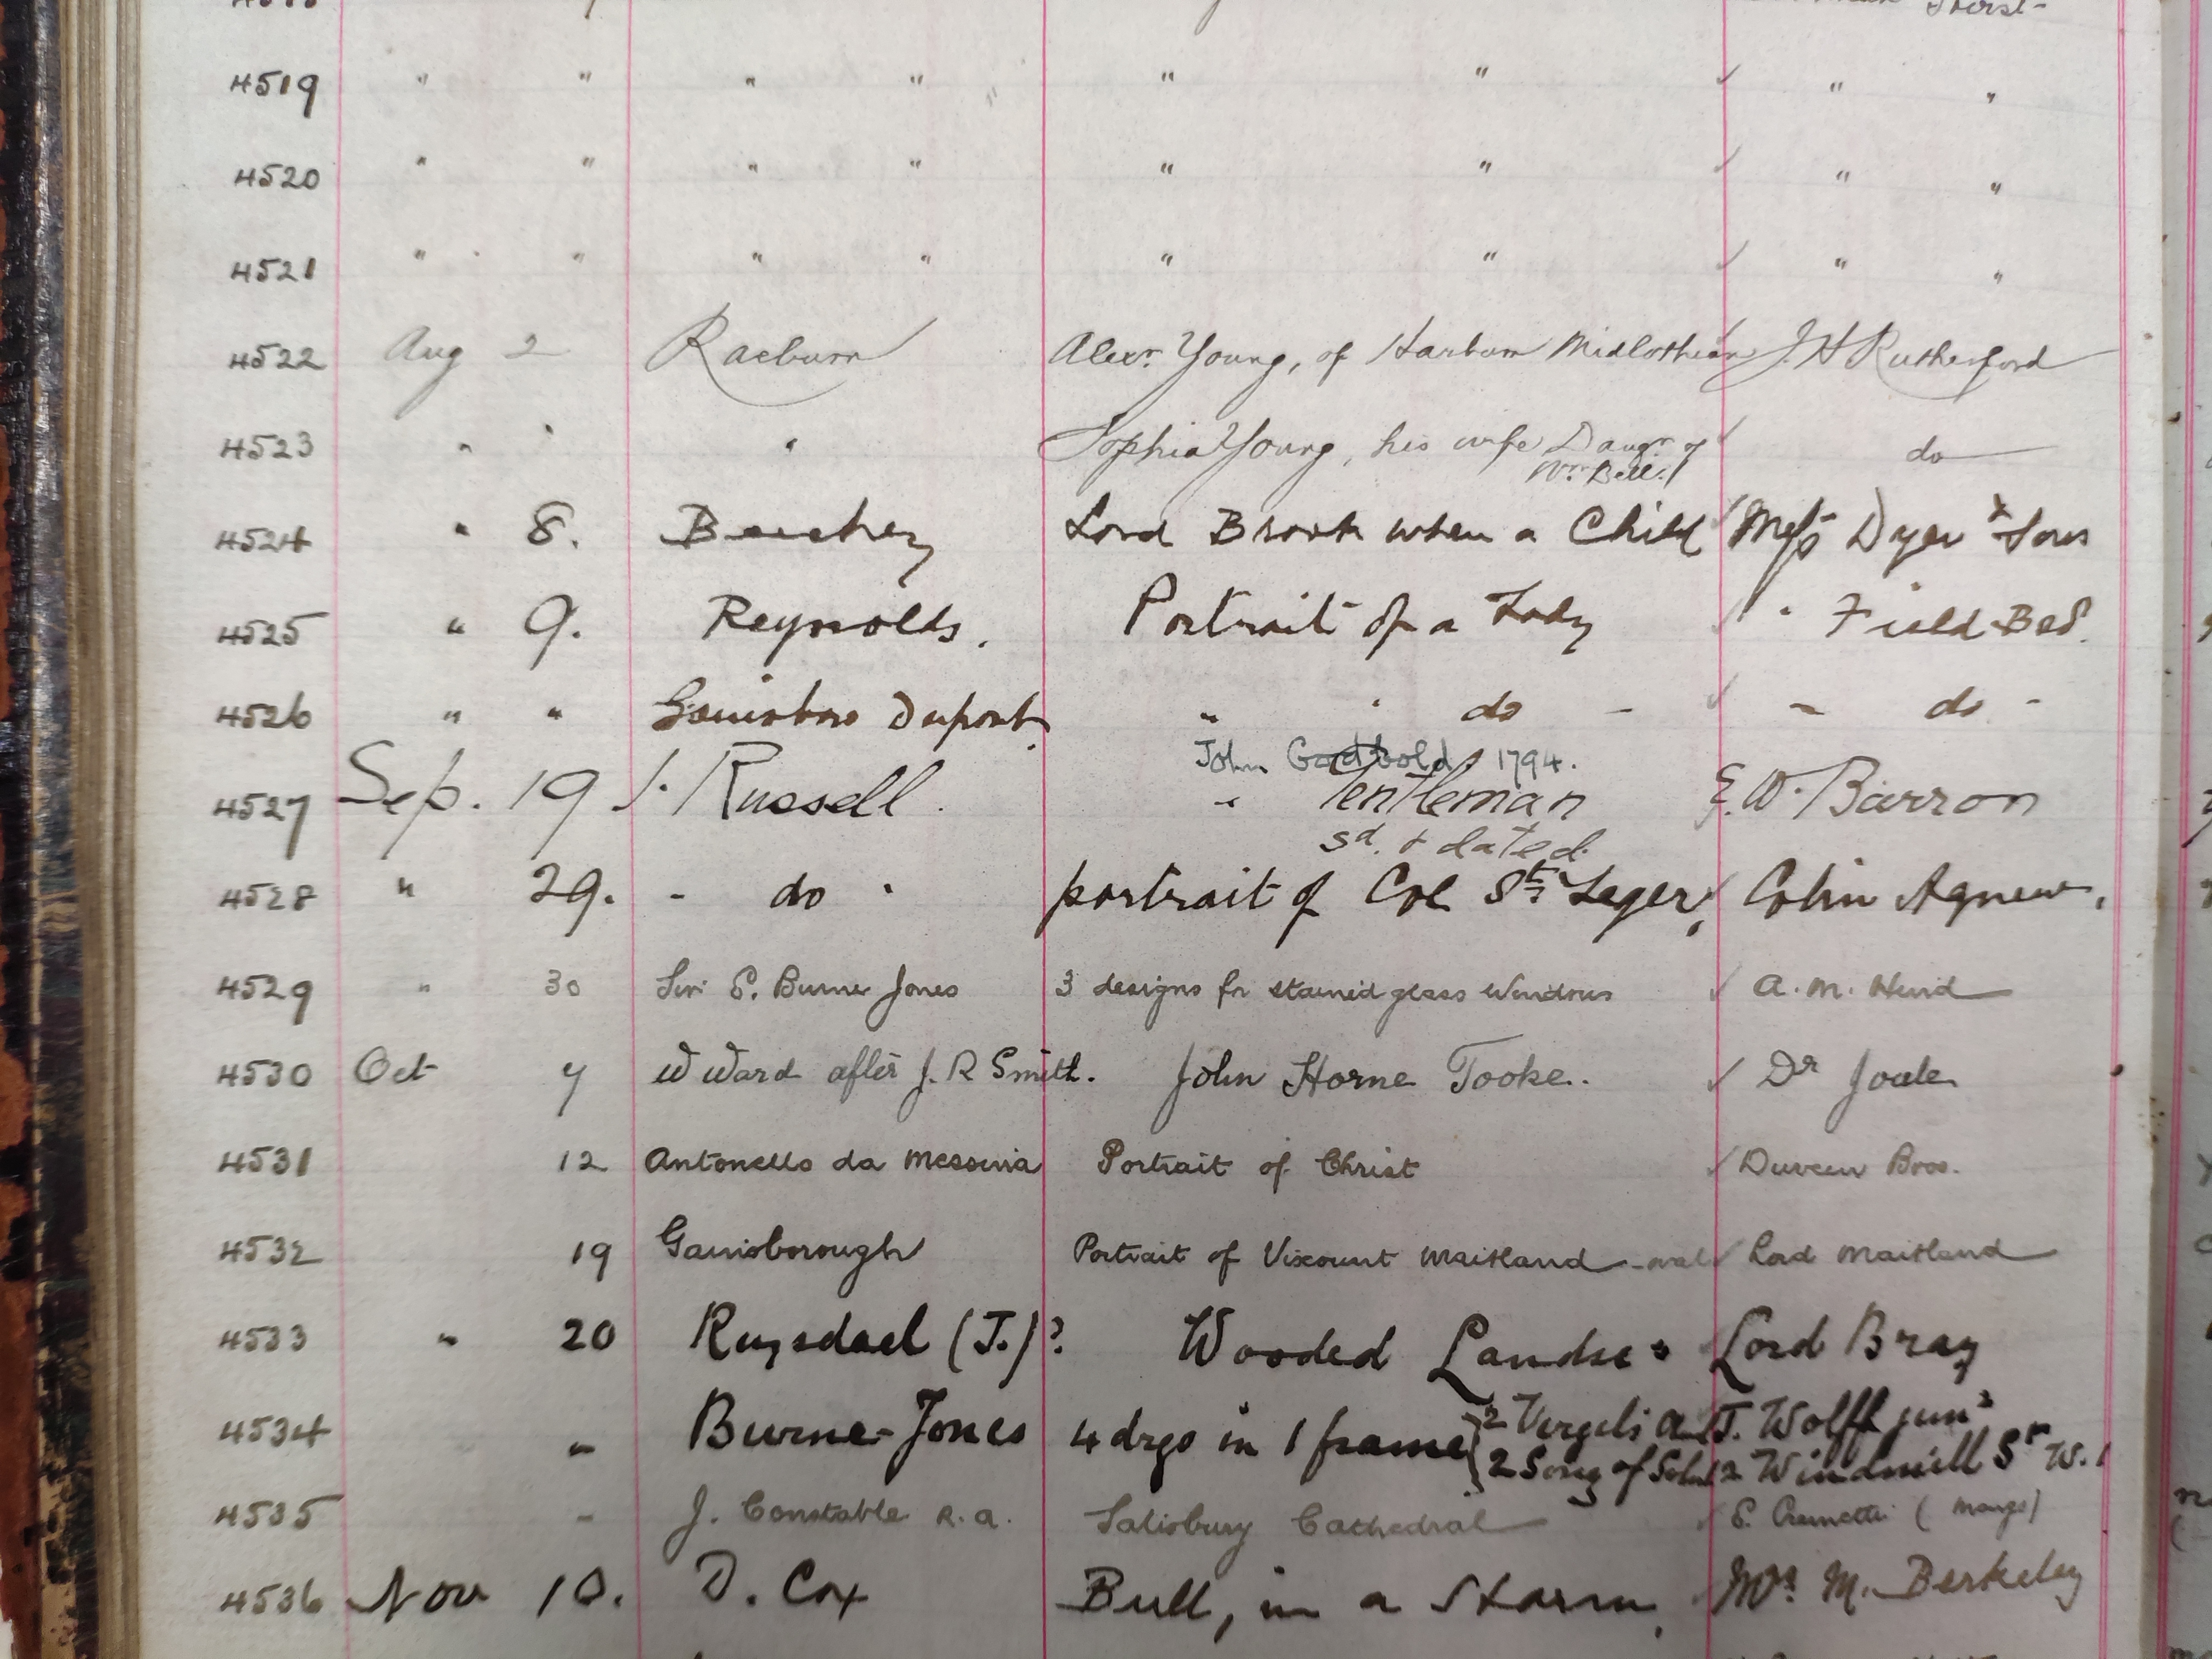 4519 " " " " " " ✓ " "
4520 " " " " " " ✓ " "
4521 " " " " " " ✓ " "
4522 Aug 2 Raeburn Alexr. Young, of Harburn Midlothian ✓ J. H Rutherford
4523 " " " Sophia Young, his wife Daugr of ✓ do
Wm. Bell.
4524 " 8. Beechey Lord Brook when a Child ✓ Messrs Dyer & Sons
4525 " 9. Reynolds. Portrait of a Lady ✓ " Field
4526 " " Gainsboro Dupont " " do - ✓ " do -
John Godbold 1794.
4527 Sep. 19 J. Russell. " Gentleman E. W. Barron
sd. & dated.
4528 " 29. - do " portrait of Col St. Leger, ✓ Colin Agnew.
4529 " 30 Sir E. Burne Jones 3 designs for stained glass windows ✓ A. M. Hind
4530 Oct 7 W Ward after J. R Smith. John Horne Tooke. ✓ Dr
4531 12 Antonello da Messina Portrait of Christ ✓ Duveen Bros.
4532 19 Gainsborough Portrait of Viscount Maitland - oval ✓ Lord Maitland
4533 " 20 Ruysdael (J.)? Wooded Landsc. Lord Bray
4534 " Burne-Jones 4 drgs in 1 frame { 2 Vergils T. Wolff junr
2 Song of Sol 12 Windmill St W. 1
4535 - J. Constable R.A. Salisbury Cathedral ✓ E. Cremetti
4536 Nov 10. D. Cox Bull, in a Storm. Mrs M. Berkeley